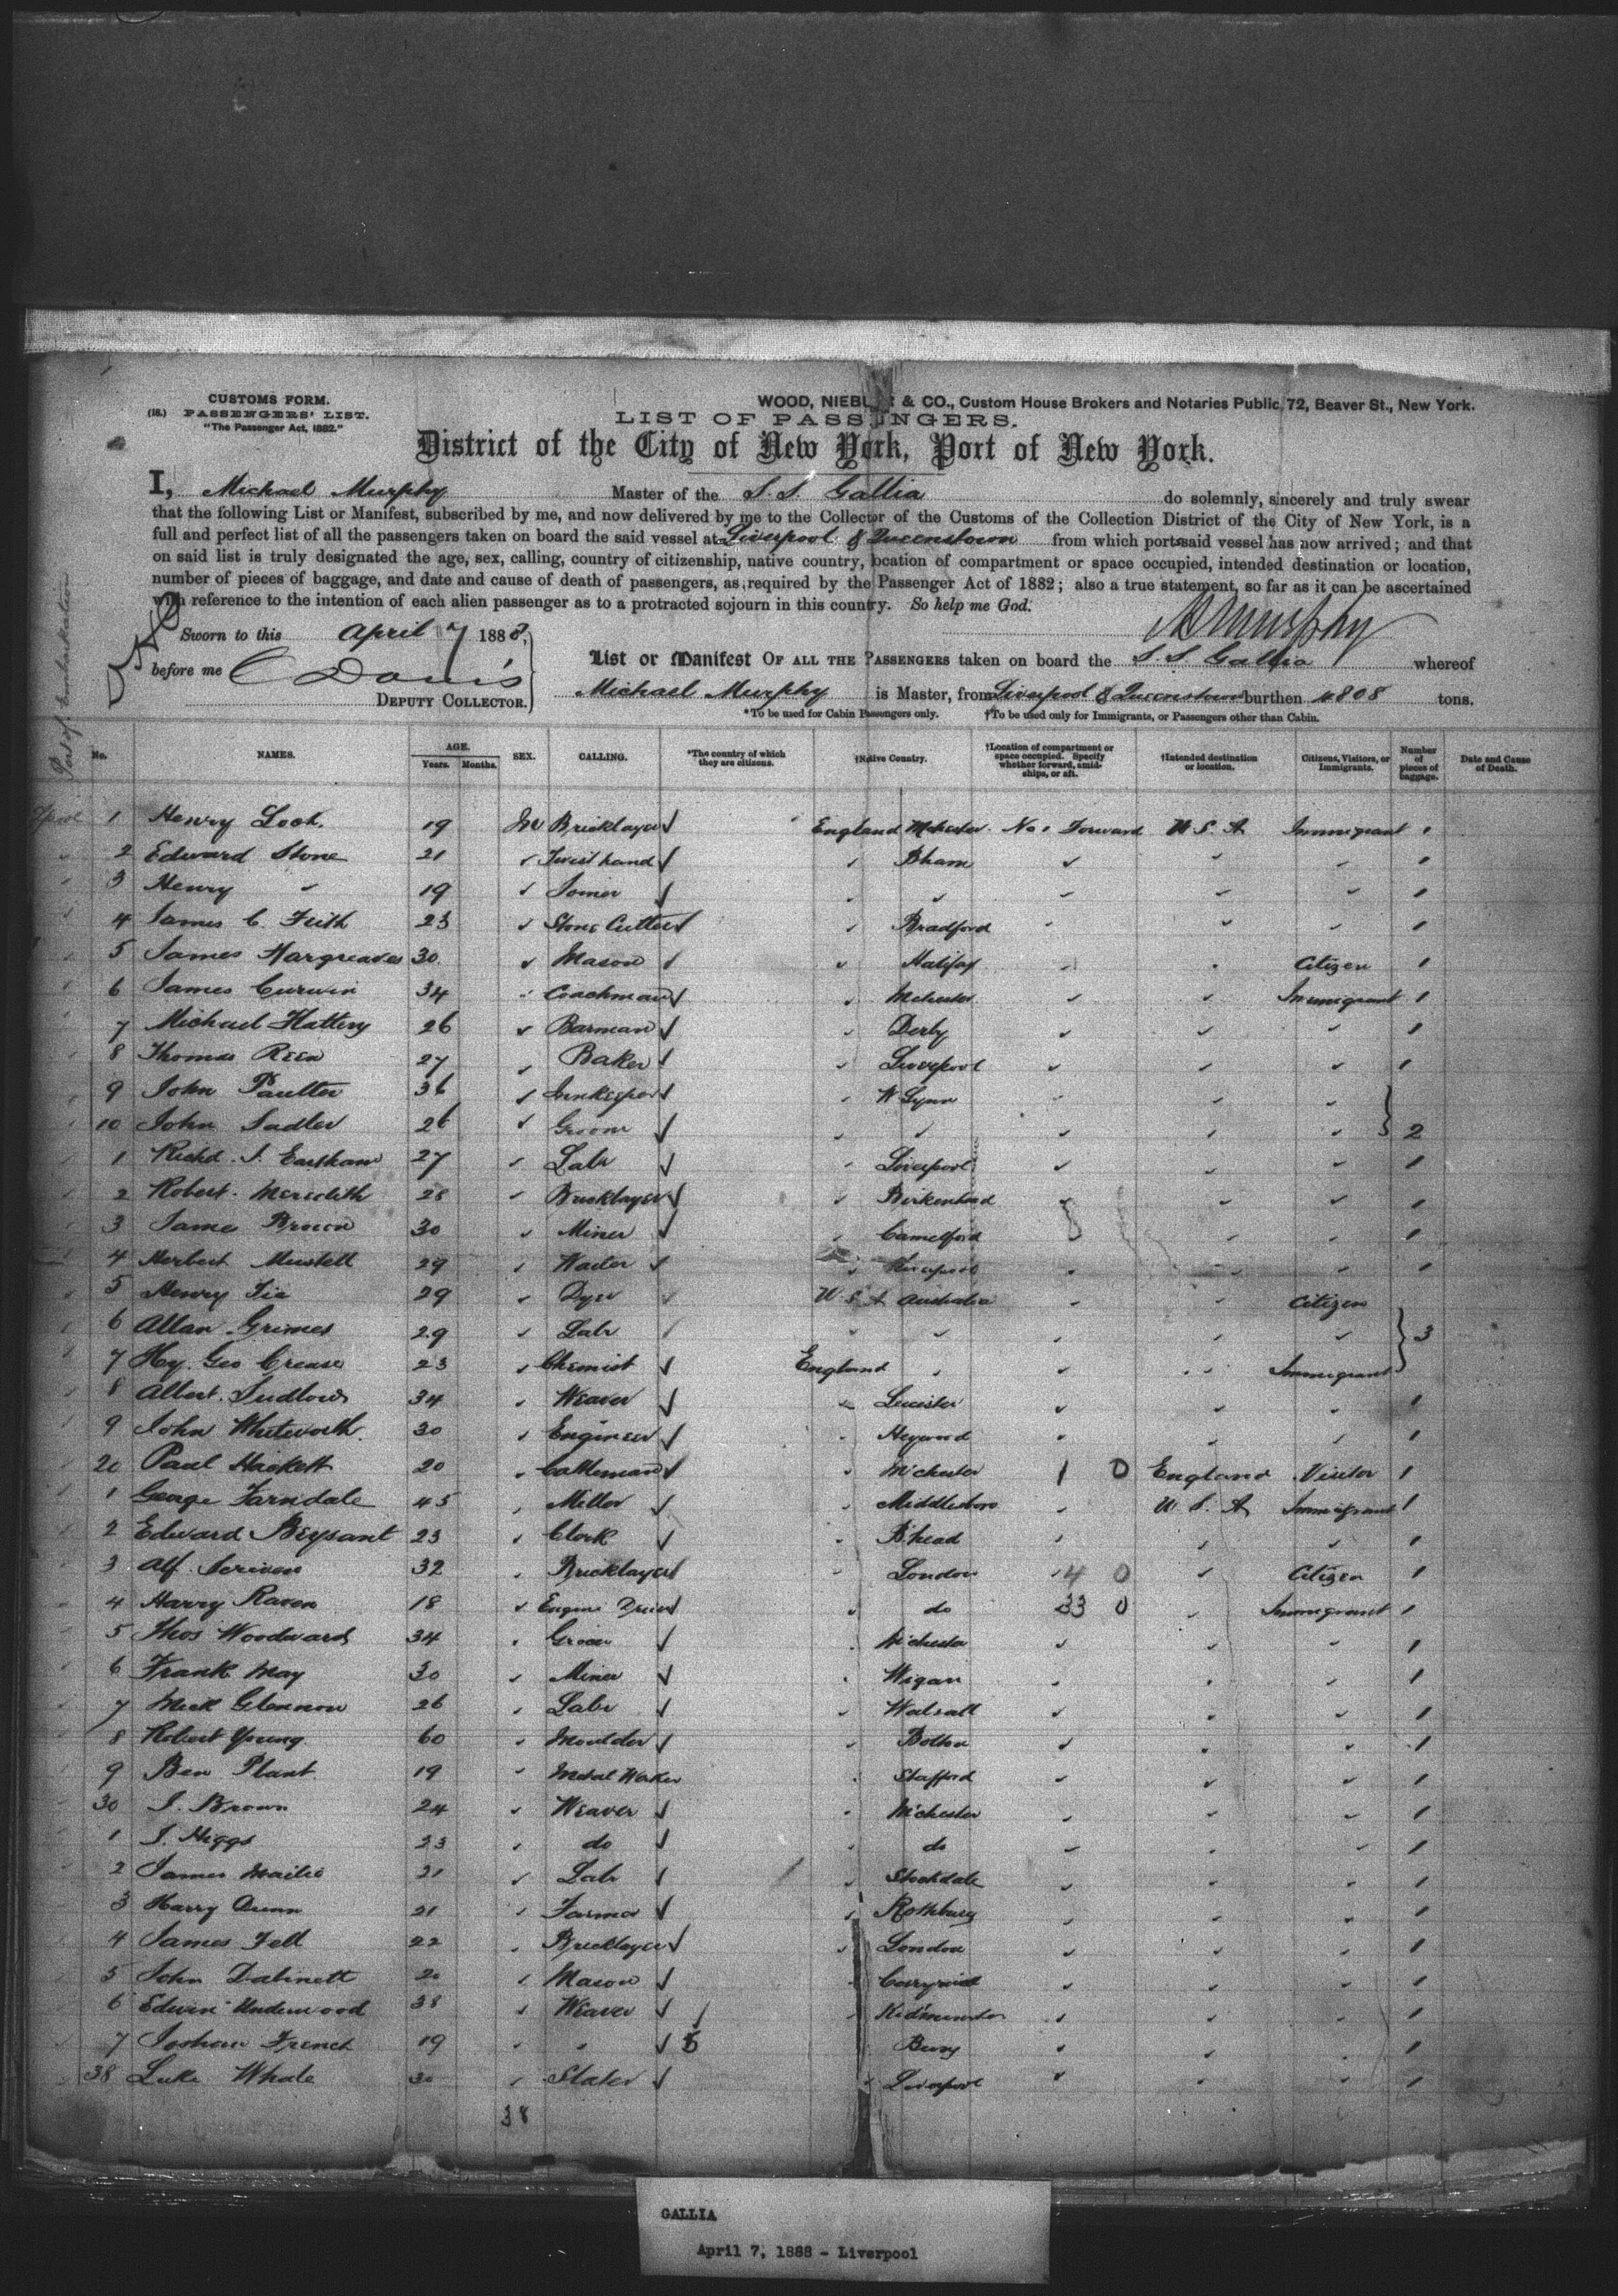 CUSTOMS FORM.
(18.) PASSENGERS' LIST.
"The Passenger Act, 1882."
WOOD, NIEB & CO., Custom House Brokers and Notaries Public, 72, Beaver St., New York.
LIST OF PASSENGERS.
District of the City of New York, Port of New York.
I, Michael Murphy Master of the S.S. Gallia do solemnly, sincerely and truly swear
that the following List or Manifest, subscribed by me, and now delivered by me to the Collector of the Customs of the Collection District of the City of New York, is a
full and perfect list of all the passengers taken on board the said vessel at Liverpool & Queenstown from which ports said vessel has now arrived; and that
on said list is truly designated the age, sex, calling, country of citizenship, native country, location of compartment or space occupied, intended destination or location,
number of pieces of baggage, and date and cause of death of passengers, as required by the Passenger Act of 1882; also a true statement, so far as it can be ascertained
with reference to the intention of each alien passenger as to a protracted sojourn in this country. So help me God.
M Murphy
Sworn to this April 7 1888,
before me C Davis
DEPUTY COLLECTOR.
List or Manifest OF ALL THE PASSENGERS taken on board the S.S. Gallia whereof
Michael Murphy is Master, from Liverpool & Queenstown burthen 4808 tons.
*To be used for Cabin Passengers only. †To be used only for Immigrants, or Passengers other than Cabin.
Port of Embarkation No. NAMES. AGE. Years. Months. SEX. CALLING. *The country of which they are citizens. †Native Country. †Location of compartment or space occupied. Specify whether forward, amidships, or aft. †Intended destination or location. Citizens, Visitors, or Immigrants. Number of pieces of baggage. Date and Cause of Death.
1 Henry 19 M Bricklayer England Mchester No 1 Forward U.S.A Immigrant 1
2 Edward Stone 21 Bham 1
3 Henry 19 1
4 James C. 23 Stone Cutter Bradford 1
5 James Hargreaves 30 Mason Halifax Citizen 1
6 James Curwin 34 Coachman Mchester Immigrant 1
7 Michael 26 Barman Derby 1
8 Thomas 27 Baker Liverpool 1
9 John Paulter 36 Innkeeper
10 John Sadler 26 Groom 2
1 Richd. Eastham 27 Labr Liverpool 1
2 Robert Meredith 28 Bricklayer Birkenhead 1
3 James Brown 30 Miner Camelford 1
4 Herbert 29 Waiter Liverpool 1
5 Henry 29 Dyer U.S.A Australia Citizen
6 Allan Grimes 29 Labr 3
7 Hy. Geo Crease 23 Chemist England Immigrant
8 Albert Ludlow 34 Weaver 1
9 John Whitworth 30 Engineer Heywood 1
20 Paul Hackett 20 Cattleman M'chester 1 0 England Visitor 1
1 George Farndale 45 Miller Middlesboro U.S.A Immigrant 1
2 Edward Beysant 23 Clerk B'head 1
3 Alf. Scriven 32 Bricklayer London 4 0 Citizen 1
4 Harry Raven 18 Engine Driver do 33 0 Immigrant 1
5 Thos Woodward 34 Grocer M'chester 1
6 Frank May 30 Miner Wigan 1
7 Mick Glennon 26 Labr Walsall 1
8 Robert Young 60 Moulder Bolton 1
9 Ben Plant 19 Metal Worker Stafford 1
30 J. Brown 24 Weaver M'chester 1
1 J. Higgs 23 do do 1
2 James 21 Labr 1
3 Harry Dunn 21 Farmer Rothbury 1
4 James Fell 22 Bricklayer London 1
5 John Dabinett 20 Mason 1
6 Edwin Underwood 38 Weaver Kid'minster 1
7 French 19 Bury 1
38 Luke Whale 30 Slater Liverpool 1
38
GALLIA
April 7, 1888 - Liverpool